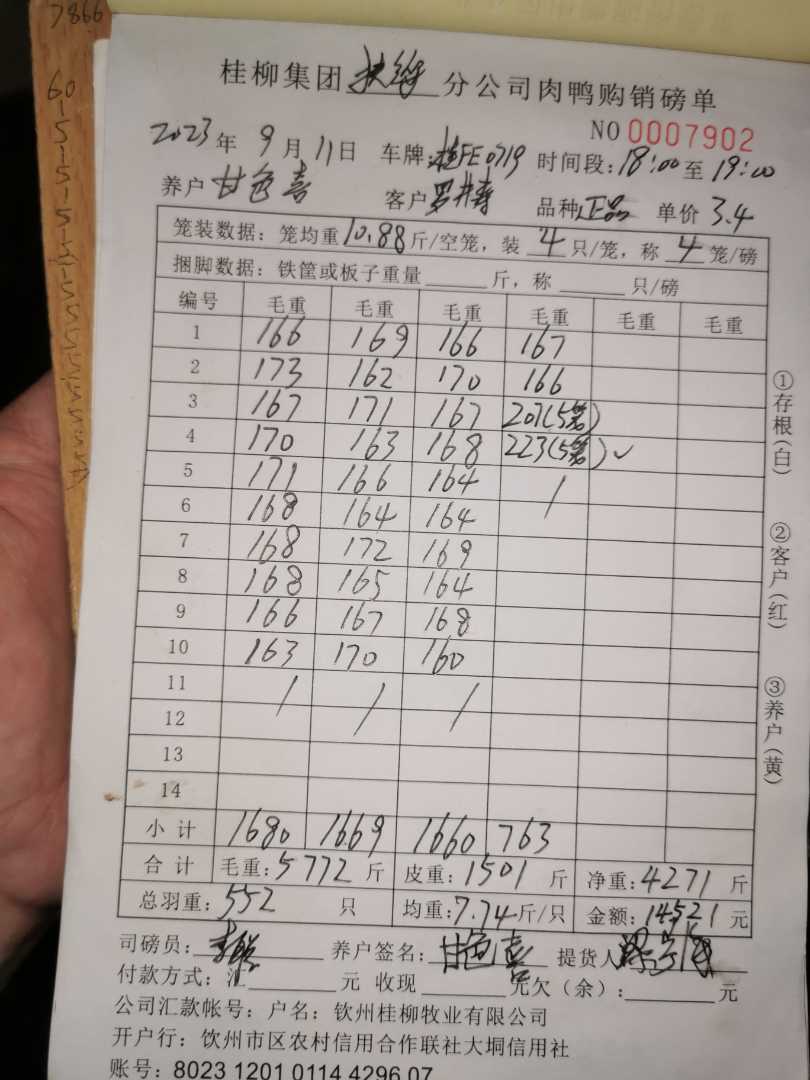 7866
60
桂柳集团 扶绥 分公司肉鸭购销磅单
NO 0007902
2023年 9月 11日 车牌:桂FE0719 时间段:18:00至 19:00
养户 甘色喜 客户 品种 正品 单价 3.4
笼装数据: 笼均重10.88斤/空笼, 装 4 只/笼, 称 4 笼/磅
捆脚数据: 铁筐或板子重量 斤, 称 只/磅
编号 毛重 毛重 毛重 毛重 毛重 毛重
1 166 169 166 167
2 173 162 170 166
3 167 171 167 207(5笼)
4 170 163 168 223(5笼)✓
5 171 166 164 /
6 168 164 164
7 168 172 169
8 168 165 164
9 166 167 168
10 163 170 160
11 /
12 / /
13
14
小计 1680 1669 1660 763
合计 毛重:5772斤 皮重:1501斤 净重:4271斤
总羽重:552 只 均重:7.74斤/只 金额:14521元
司磅员: 养户签名: 甘色喜 提货人
付款方式: 汇 元 收现 元欠(余): 元
公司汇款帐号: 户名: 钦州桂柳牧业有限公司
开户行: 饮州市区农村信用合作联社大垌信用社
账号: 8023 1201 0114 4296 07
①存根(白)
②客户(红)
③养户(黄)